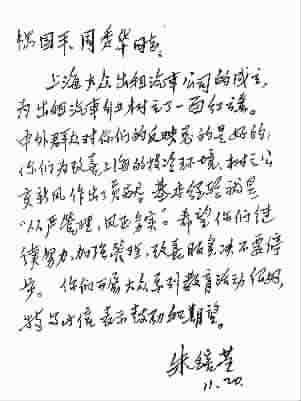 国平、周秀华同志：
上海大众出租汽车公司的成立，
为出租汽车行业树立了一面红旗。
中外群众对你们的反映总的是好的，
你们为改善上海的投资环境，树立公
交新风作出了贡献。基本经验就是
“从严管理，风正务实”。希望你们继
续努力，加强管理，改善服务，决不要停
步。你们开展大众系列教育活动很好，
特写此信表示鼓励和期望。
朱镕基
11.20.